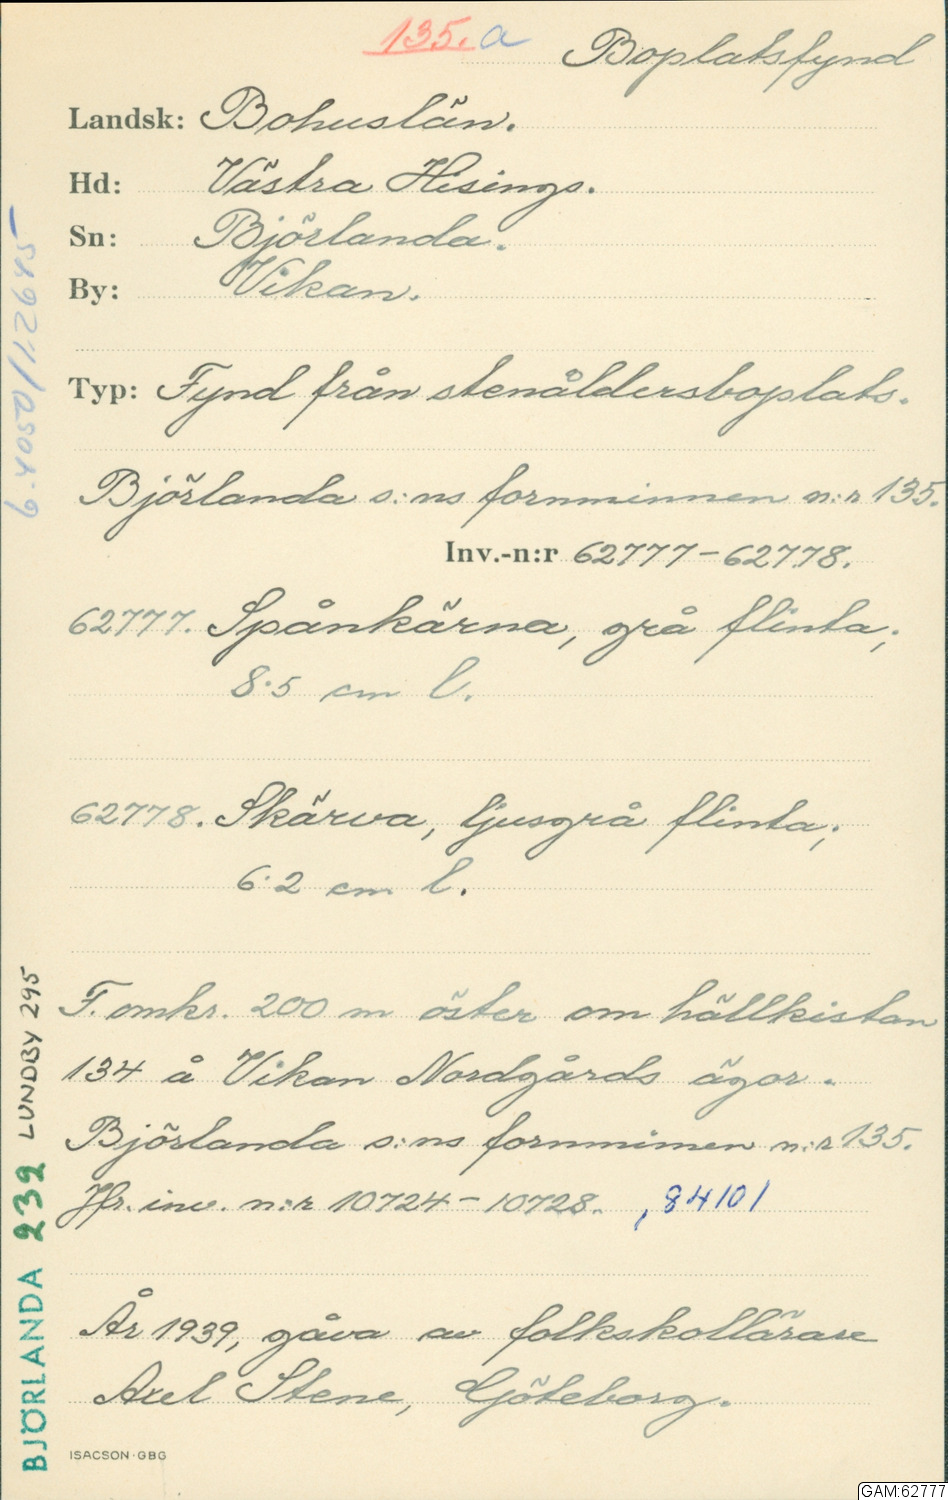 135.a
Boplatsfynd
Landsk: Bohuslän.
Hd: Västra Hisings.
Sn: Björlanda.
By: Vikan.
Typ: Fynd från stenåldersboplats.
Björlanda s:ns fornminnen n:r 135.
Inv.-n:r 62777-62778.
62777. Spånkärna, grå flinta;
8.5 cm l.
62778. Skärva, ljusgrå flinta;
6.2 cm l.
F. omkr. 200 m öster om hällkistan
134 å Vikan Nordgårds ägor.
Björlanda s:ns fornminnen n:r 135.
Jfr. inv. n:r 10724-10728. , 84101
År 1939, gåva av folkskollärare
Axel Stene, Göteborg.
ISACSON·GBG
BJÖRLANDA 239 LUNDBY 295
GAM:62777